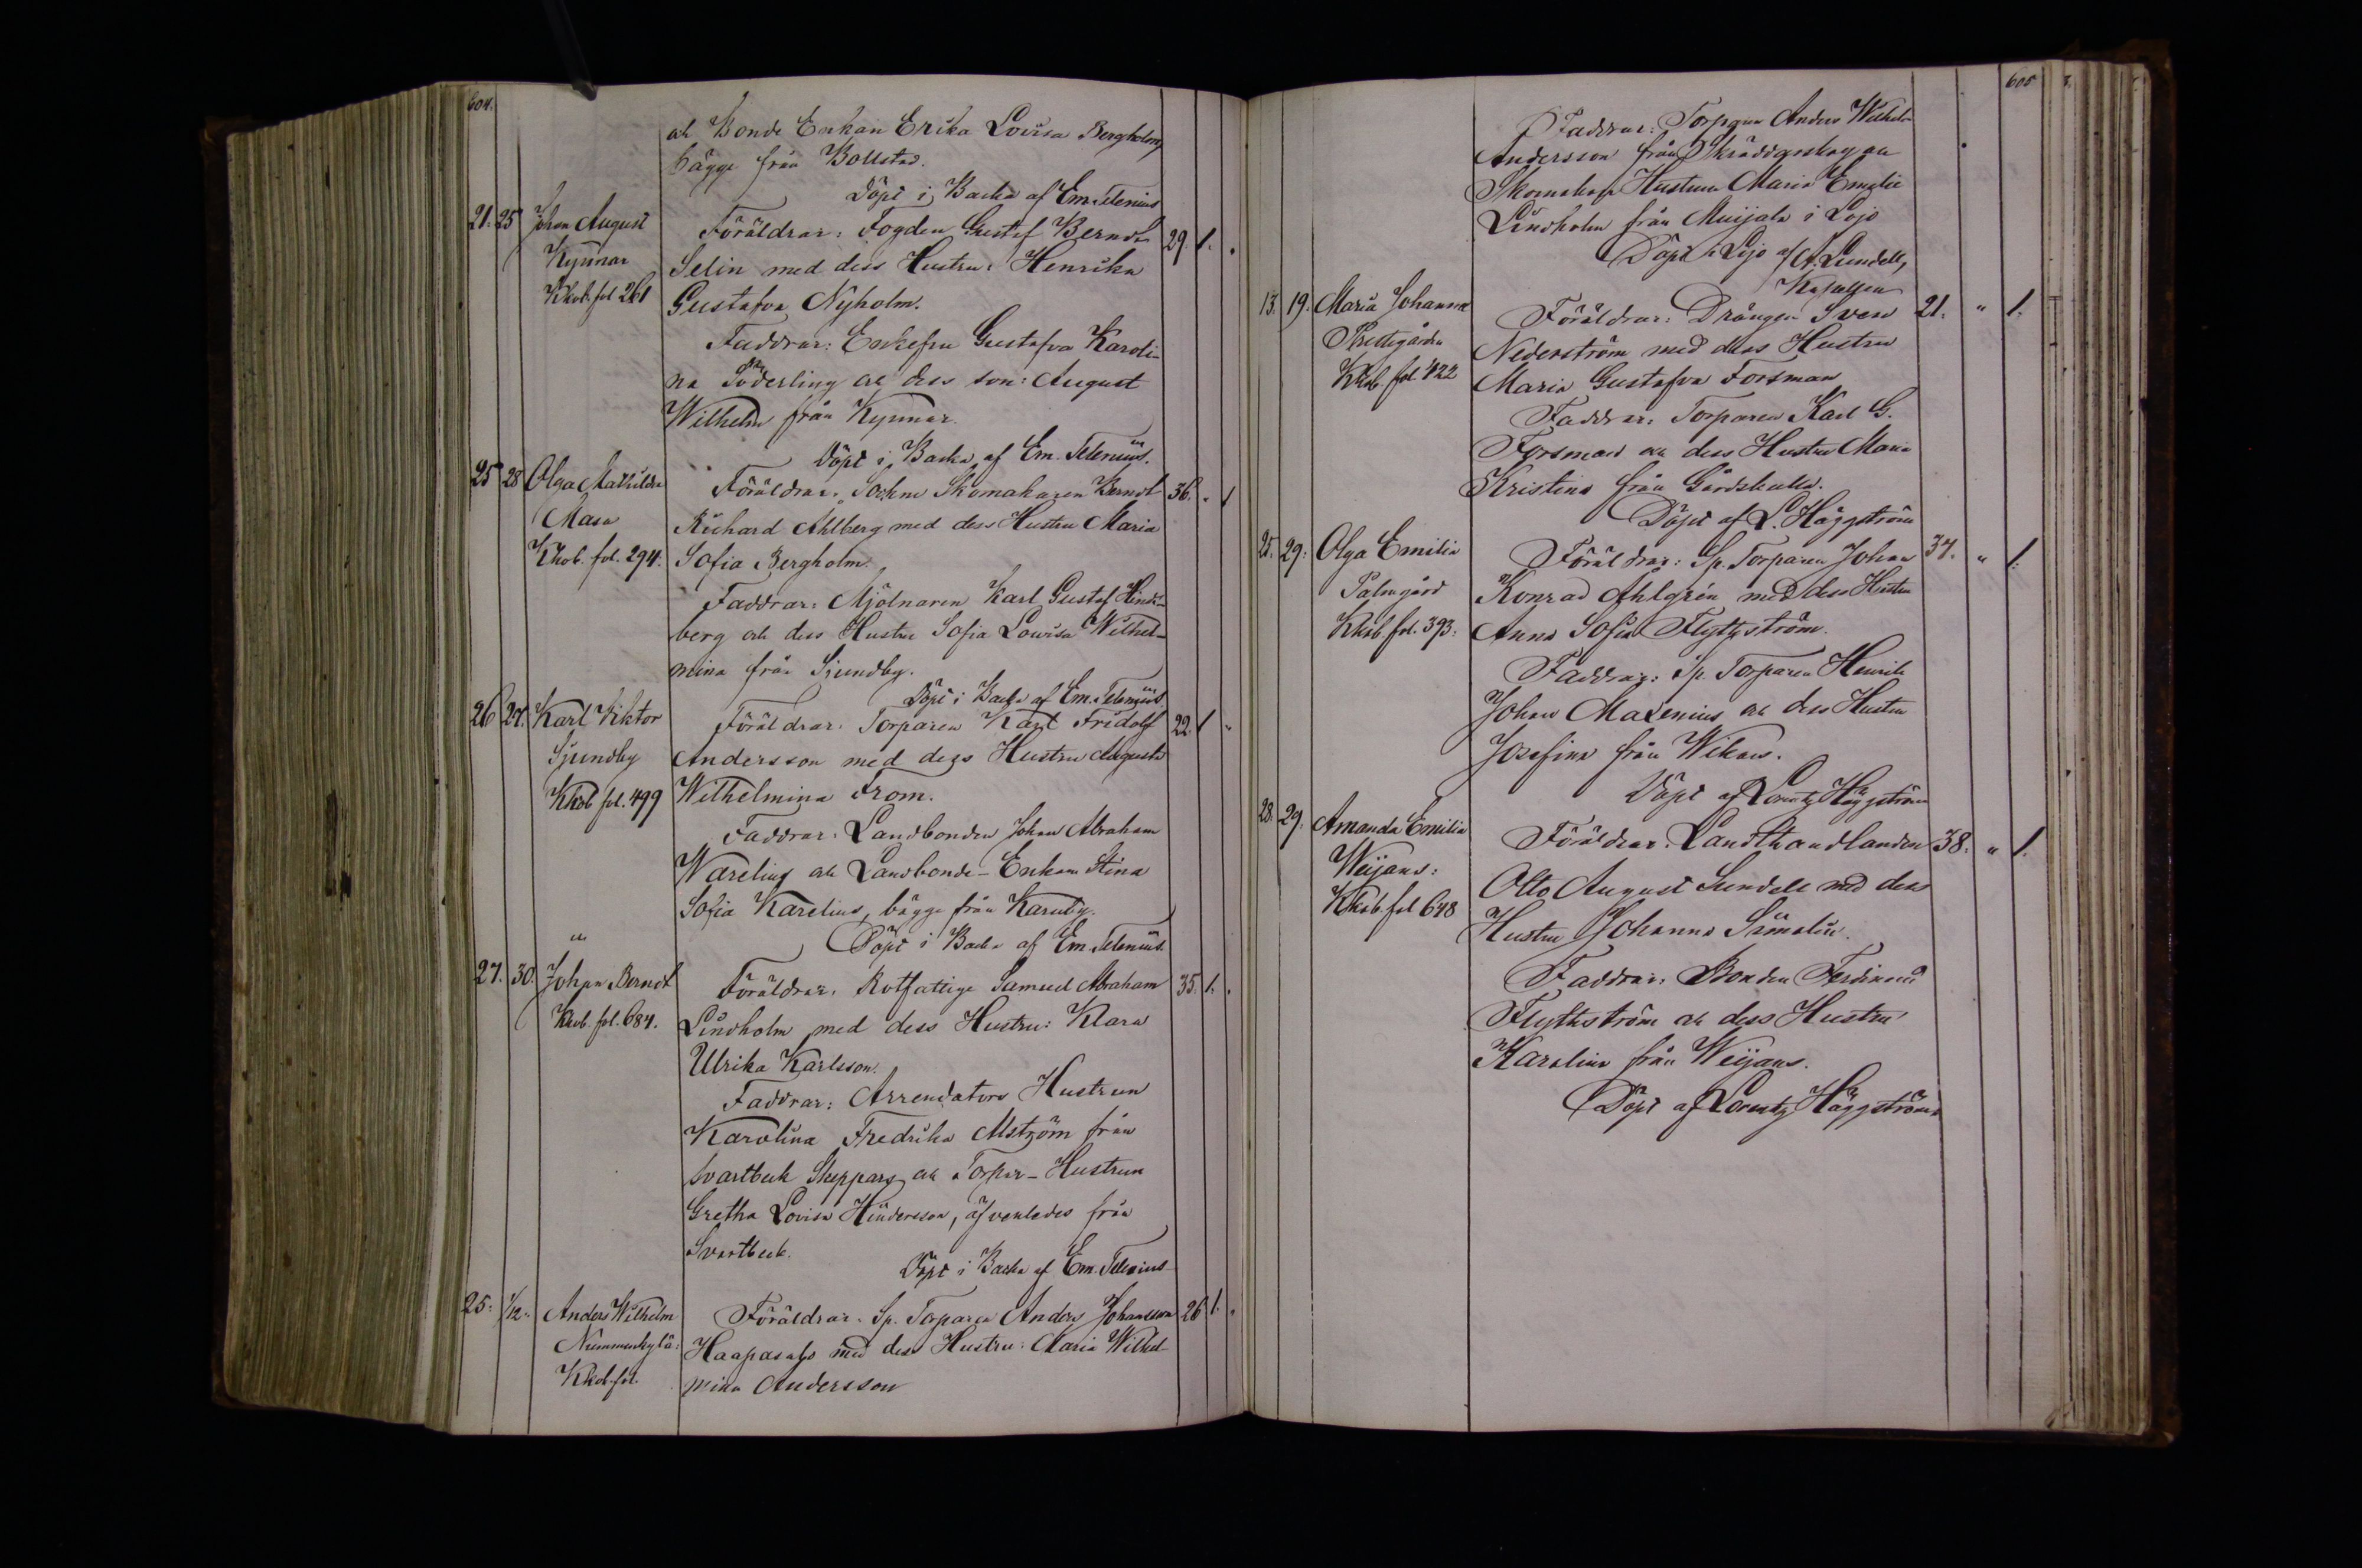 604.
och Bonde Enkan Erika Lovisa Bergholm,
bägge från Bollstad.
Döpt i Backa af Em. Telenius
21. 25 Johan August Föräldrar: Fogden Gustaf Berndt 29. 1. "
Kynnar Selin med dess Hustru: Henrika
Kkob. fol 261 Gustafva Nyholm.
Faddrar: Enkefru Gustafva Karoli-
na Söderling och dess son: August
Wilhelm från Kynnar.
Döpt i Backa af Em. Telenius.
25 28 Olga Mathilda Föräldrar: Sockne Skomakaren Berndt 36. " 1
Masa Richard Ahlberg med dess Hustru Maria
Kkob. fol. 294. Sofia Bergholm.
Faddrar: Mjölnaren Karl Gustaf Lind-
berg och dess Hustru Sofia Lowisa Wilhel-
mina från Sjundby.
Döpt i Backa af Em. Telenius
26 27. Karl Viktor Föräldrar: Torparen Karl Fridolf 22. 1 "
Sjundby Andersson med dess Hustru Augusta
Kkob fol. 499 Wilhelmina From.
Faddrar: Landbonden Johan Abraham
Warelius och Landbonde-Enkan Stina
Sofia Karelius, bägge från Karuby.
Döpt i Backa af Em. Telenius
27. 30. Johan Berndt Föräldrar: Rotfattige Samuel Abraham 35. 1. "
Kkob. fol. 684. Lindholm med dess Hustru: Klara
Ulrika Karlsson.
Faddrar: Arrendators Hustrun
Karolina Fredrika Alström från
Svartbeck Skeppars och Torpar-Hustrun
Gretha Lovisa Hindersson, äfvenledes från
Svartbeck.
Döpt i Backa af Em. Telenius
25. 1/12. Anders Wilhelm Föräldrar: Sp. Torparen Anders Johansson 26 1. "
Nummenkylä: Haapasalo med dess Hustru: Maria Wilhel-
Kkob. fol. mina Andersson
605
Faddrar: Torparen Anders Wilhelm
Andersson från Skräddarskog och
Skomakare Hustrun Maria Emelie
Lindholm från Muijala i Lojo
Döpt i Lojo af A. Lundell,
Kapellan
13. 19. Maria Johanna Föräldrar: Drängen Sven 21. " 1.
Prestgården Nederström med dess Hustru
Kkob. fol. 422 Maria Gustafva Forsman
Faddrar: Torparen Karl G.
Forsman och dess Hustru Maria
Kristina från Gårdskulla.
Döpt af L. Häggström
25. 29. Olga Emilia Föräldrar: Sp. Torparen Johan 37. " 1.
Palmgård Konrad Ahlgrén med dess Hustru
Kkob. fol. 393. Anna Sofia Flythström.
Faddrar: Sp. Torparen Henrik
Johan Malenius och dess Hustru
Josefina från Wikars.
Döpt af Lorentz Häggström
28. 29. Amanda Emilia Föräldrar: Landthandlanden 38. " 1.
Weijans: Otto August Sundell med dess
Kkob. fol 648 Hustru Johanna Sämalin.
Faddrar: Bonden Ferdinand
Flythström och dess Hustru
Karolina från Weijans.
Döpt af Lorentz Häggström